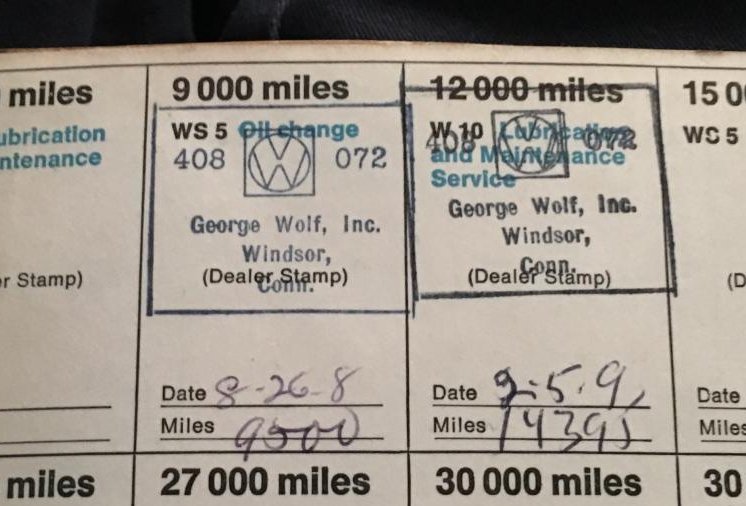 miles
ubrication
ntenance
r Stamp)
miles
9 000 miles
WS 5 Oil change
408 072
George Wolf, Inc.
Windsor,
Conn.
(Dealer Stamp)
Date 8-26-8
Miles 9500
27 000 miles
12 000 miles
W 10 Lubrication
and Maintenance
Service
408 072
George Wolf, Inc.
Windsor,
Conn.
(Dealer Stamp)
Date 2-5-9
Miles 14395
30 000 miles
15 0
WS 5
(D
Date
Miles
30